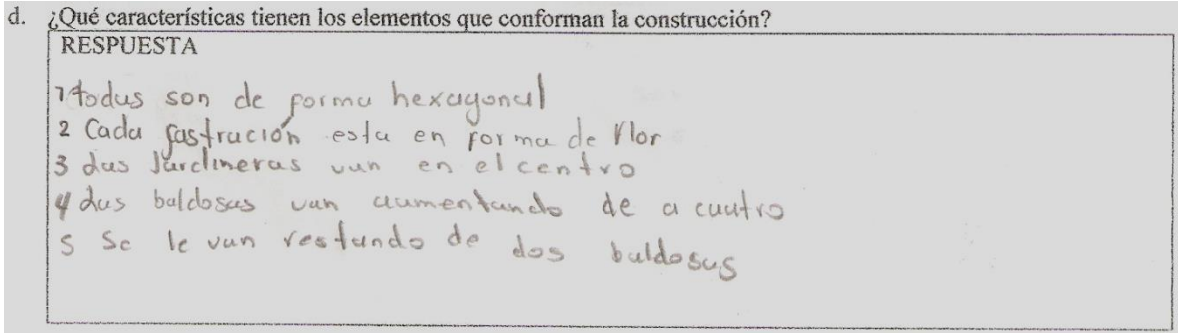 d. ¿Qué características tienen los elementos que conforman la construcción?
RESPUESTA
1 todas son de forma hexagonal
2 Cada esta en forma de Flor
3 Las Jardineras van en el centro
4 Las baldosas van aumentando de a cuatro
5 Se le van restando de dos baldosas